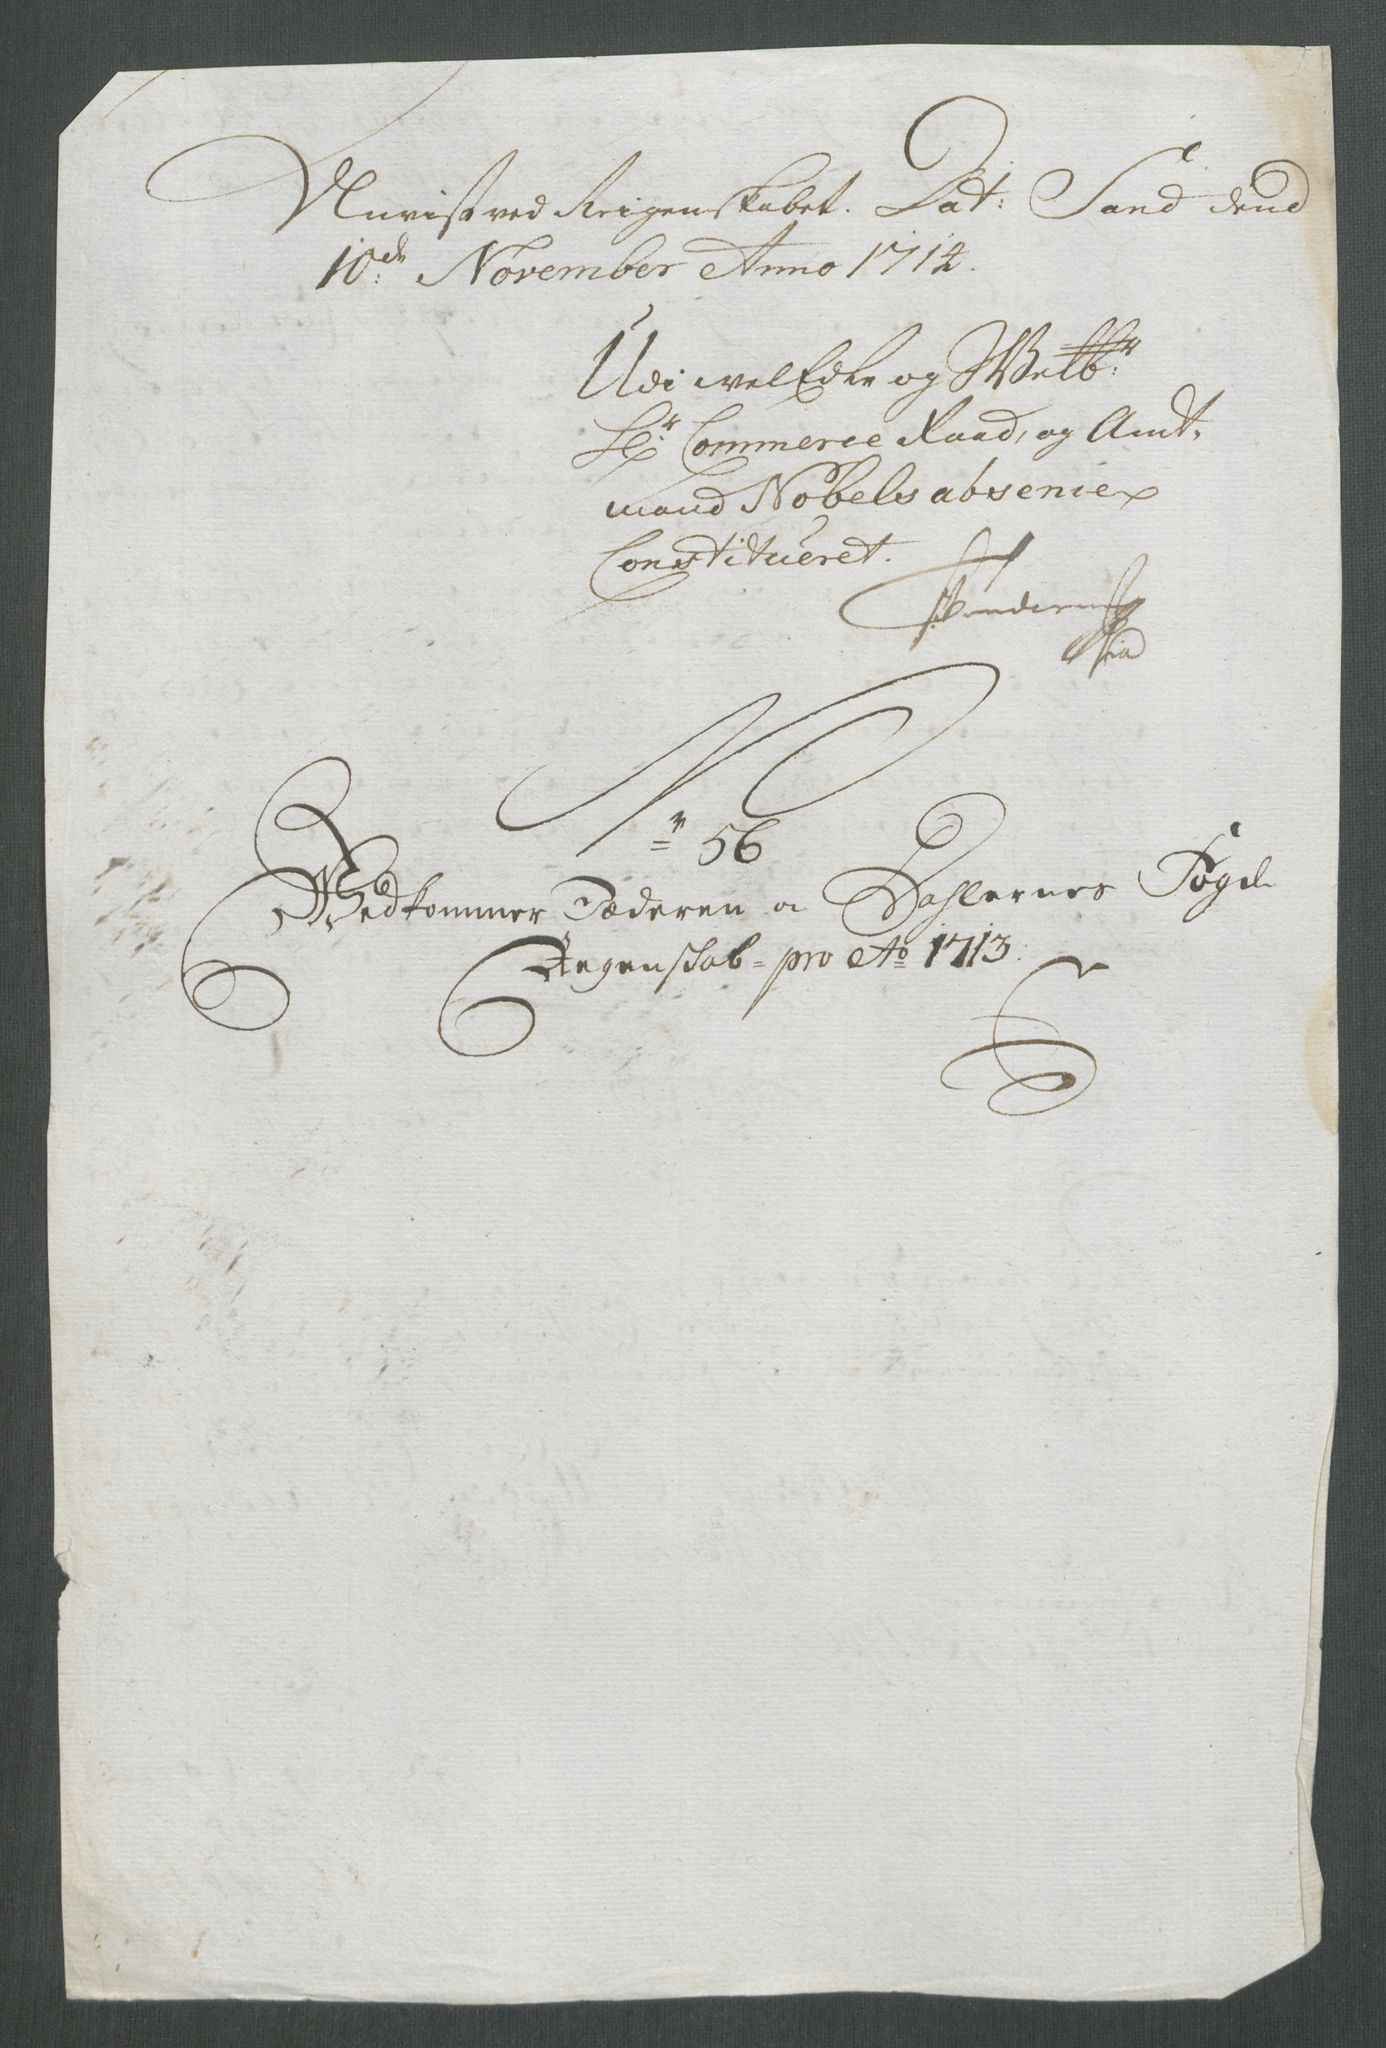 Anvist ved Reigenskabet. Dat: Sand dend
10de November Anno 1714.
Udi wel Edle og Welb:r
Hr: Commerce Raad, og Amt-
mand Nobels absence
Constitueret.
No 56
Vedkommer Jæderen og Dahlernes Fogd
Regenskab pro Ao 1713.